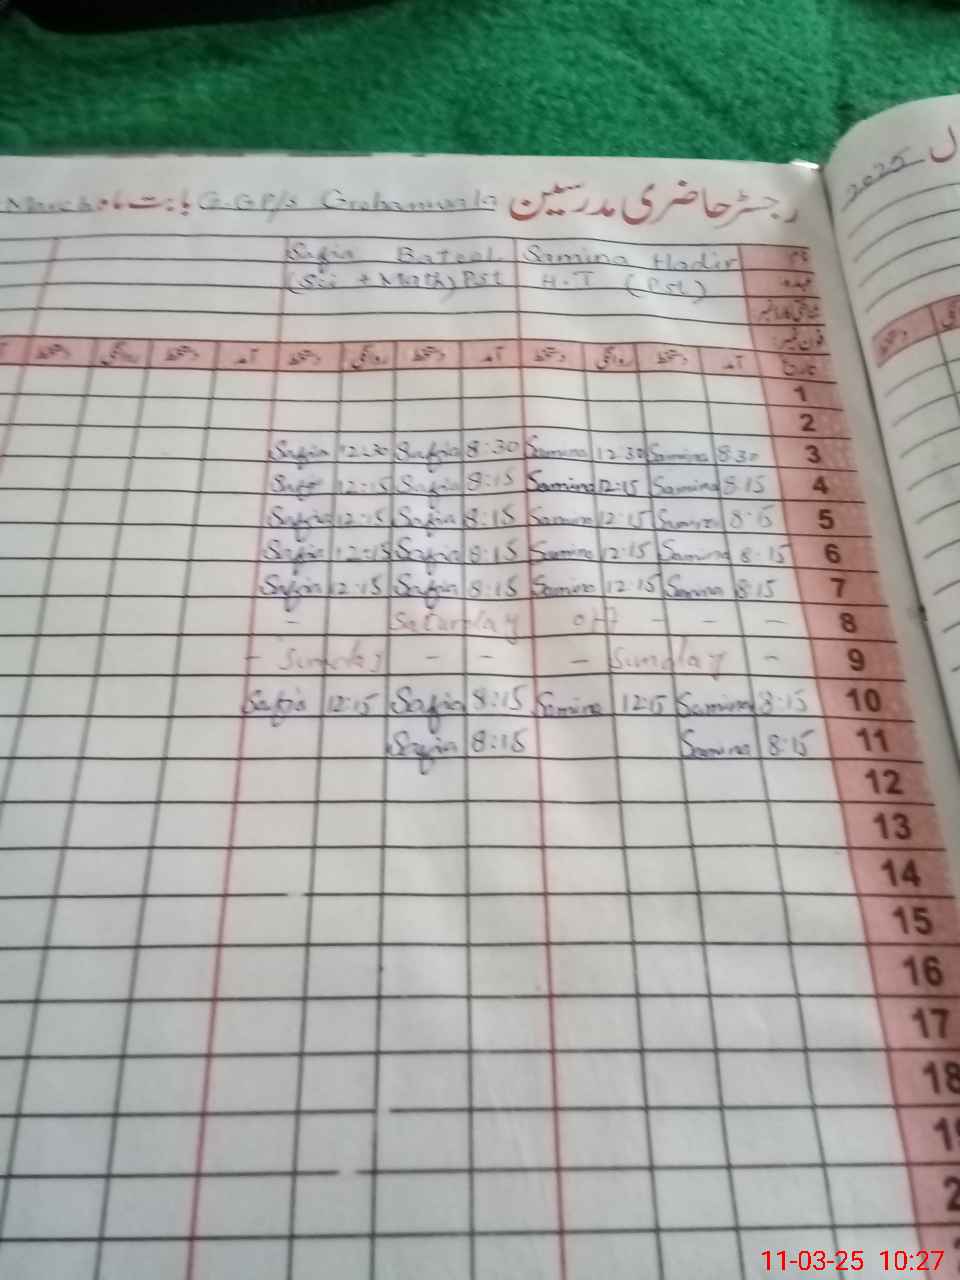 رجسٹر حاضری مدرسین G.GP/s Grohamwala بابت ماہ March
ل 2025
نام Samina Hadir Safia Bateel
عہدہ H.T (Pst) (Sci + Math) Pst
شناختی کارڈ نمبر
فون نمبر:
تاریخ آمد دستخط روانگی دستخط آمد دستخط روانگی دستخط آمد دستخط روانگی دستخط
1
2
3 8:30 Samina 12:30 Samina 8:30 Safia 12:30 Safia
4 8:15 Samina 12:15 Samina 8:15 Safia 12:15 Safia
5 8:15 Samina 12:15 Samina 8:15 Safia 12:15 Safia
6 8:15 Samina 12:15 Samina 8:15 Safia 12:15 Safia
7 8:15 Samina 12:15 Samina 8:15 Safia 12:15 Safia
8 - - - off Saturday -
9 - Sunday - - - Sunday -
10 8:15 Samina 12:15 Samina 8:15 Safia 12:15 Safia
11 8:15 Samina 8:15 Safia
12
13
14
15
16
17
18
11-03-25 10:27